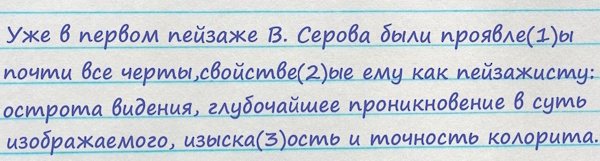 Уже в первом пейзаже В. Серова были проявле(1)ы
почти все черты,свойстве(2)ые ему как пейзажисту:
острота видения, глубочайшее проникновение в суть
изображаемого, изыска(3)ость и точность колорита.